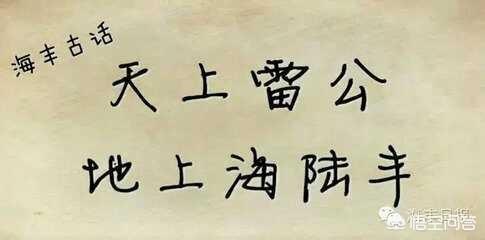 海丰古话
天上雷公
地上海陆丰
悟空问答